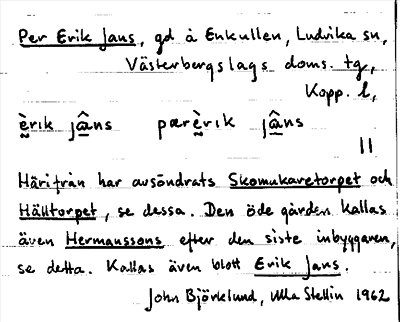 Per Erik Jans, gd å Enkullen, Ludvika sn,
Västerbergslags doms. tg,
Kopp. l,
ḛ̀rik jâ̱ns pærḛ̀rik jâ̱ns
11
Härifrån har avsöndrats Skomakaretorpet och
Hälltorpet, se dessa. Den öde gården kallas
även Hermanssons efter den siste inbyggaren,
se detta. Kallas även blott Erik Jans.
John Björklund, Ulla Stellin 1962